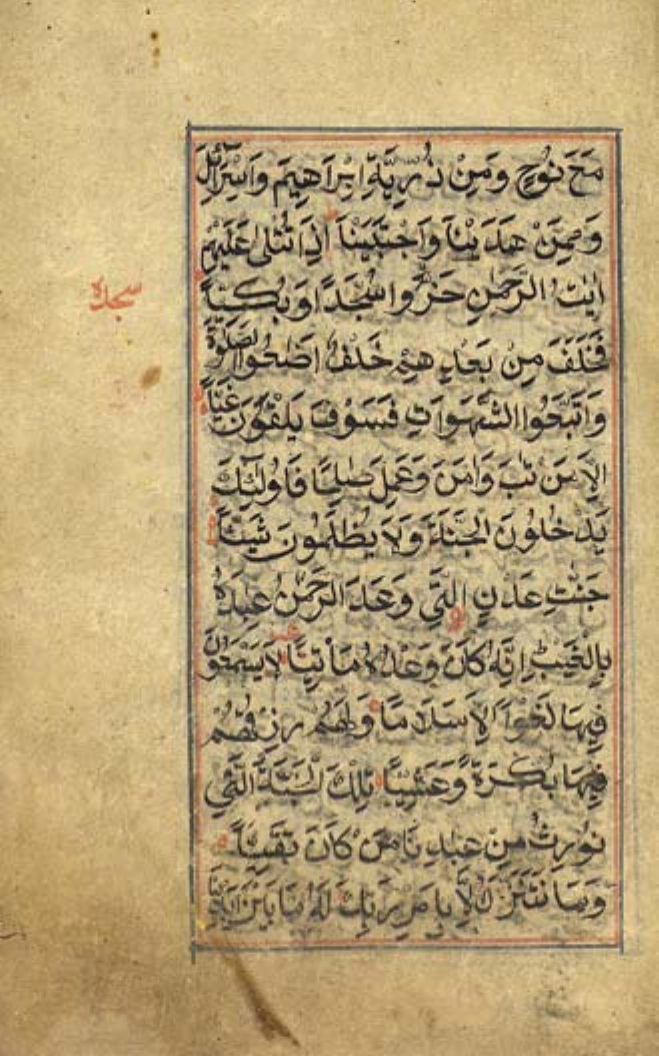 مَعَ نُوحٍ وَمِنْ ذُرِّيَّةِ اِبْرَاهِيمَ وَاِسْرَآئِلَ
وَمِمَّنْ هَدَيْنَا وَاجْتَبَيْنَا اِذَا تُتْلٰى عَلَيْهِمْ
اٰيٰتُ الرَّحْمٰنِ خَرُّوا سُجَّدًا وَبُكِيًّا
سجدة
فَخَلَفَ مِنْ بَعْدِهِمْ خَلْفٌ اَضَعُوا الصَّلٰوةَ
وَاتَّبَعُوا الشَّهَوَاتِ فَسَوْفَ يَلْقَوْنَ غَيًّا
اِلَّا مَنْ تَبَ وَاٰمَنَ وَعَمِلَ صٰلِحًا فَاُولٰئِكَ
يَدْخُلُونَ الْجَنَّةَ وَلَا يُظْلَمُونَ شَيْئًا
جَنّٰتِ عَدْنٍ الَّتِي وَعَدَ الرَّحْمٰنُ عِبَدَهُ
بِالْغَيْبِ اِنَّهُ كَانَ وَعْدُهُ مَأْتِيًّا لَا يَسْمَعُونَ
فِيهَا لَغْوًا اِلَّا سَلَامًا وَلَهُمْ رِزْقُهُمْ
فِيهَا بُكْرَةً وَعَشِيًّا تِلْكَ الْجَنَّةُ الَّتِي
نُورِثُ مِنْ عِبَدِنَا مَنْ كَانَ تَقِيًّا
وَمَا نَتَنَزَّلُ اِلَّا بِاَمْرِ رَبِّكَ لَهُ مَا بَيْنَ اَيْدِينَا